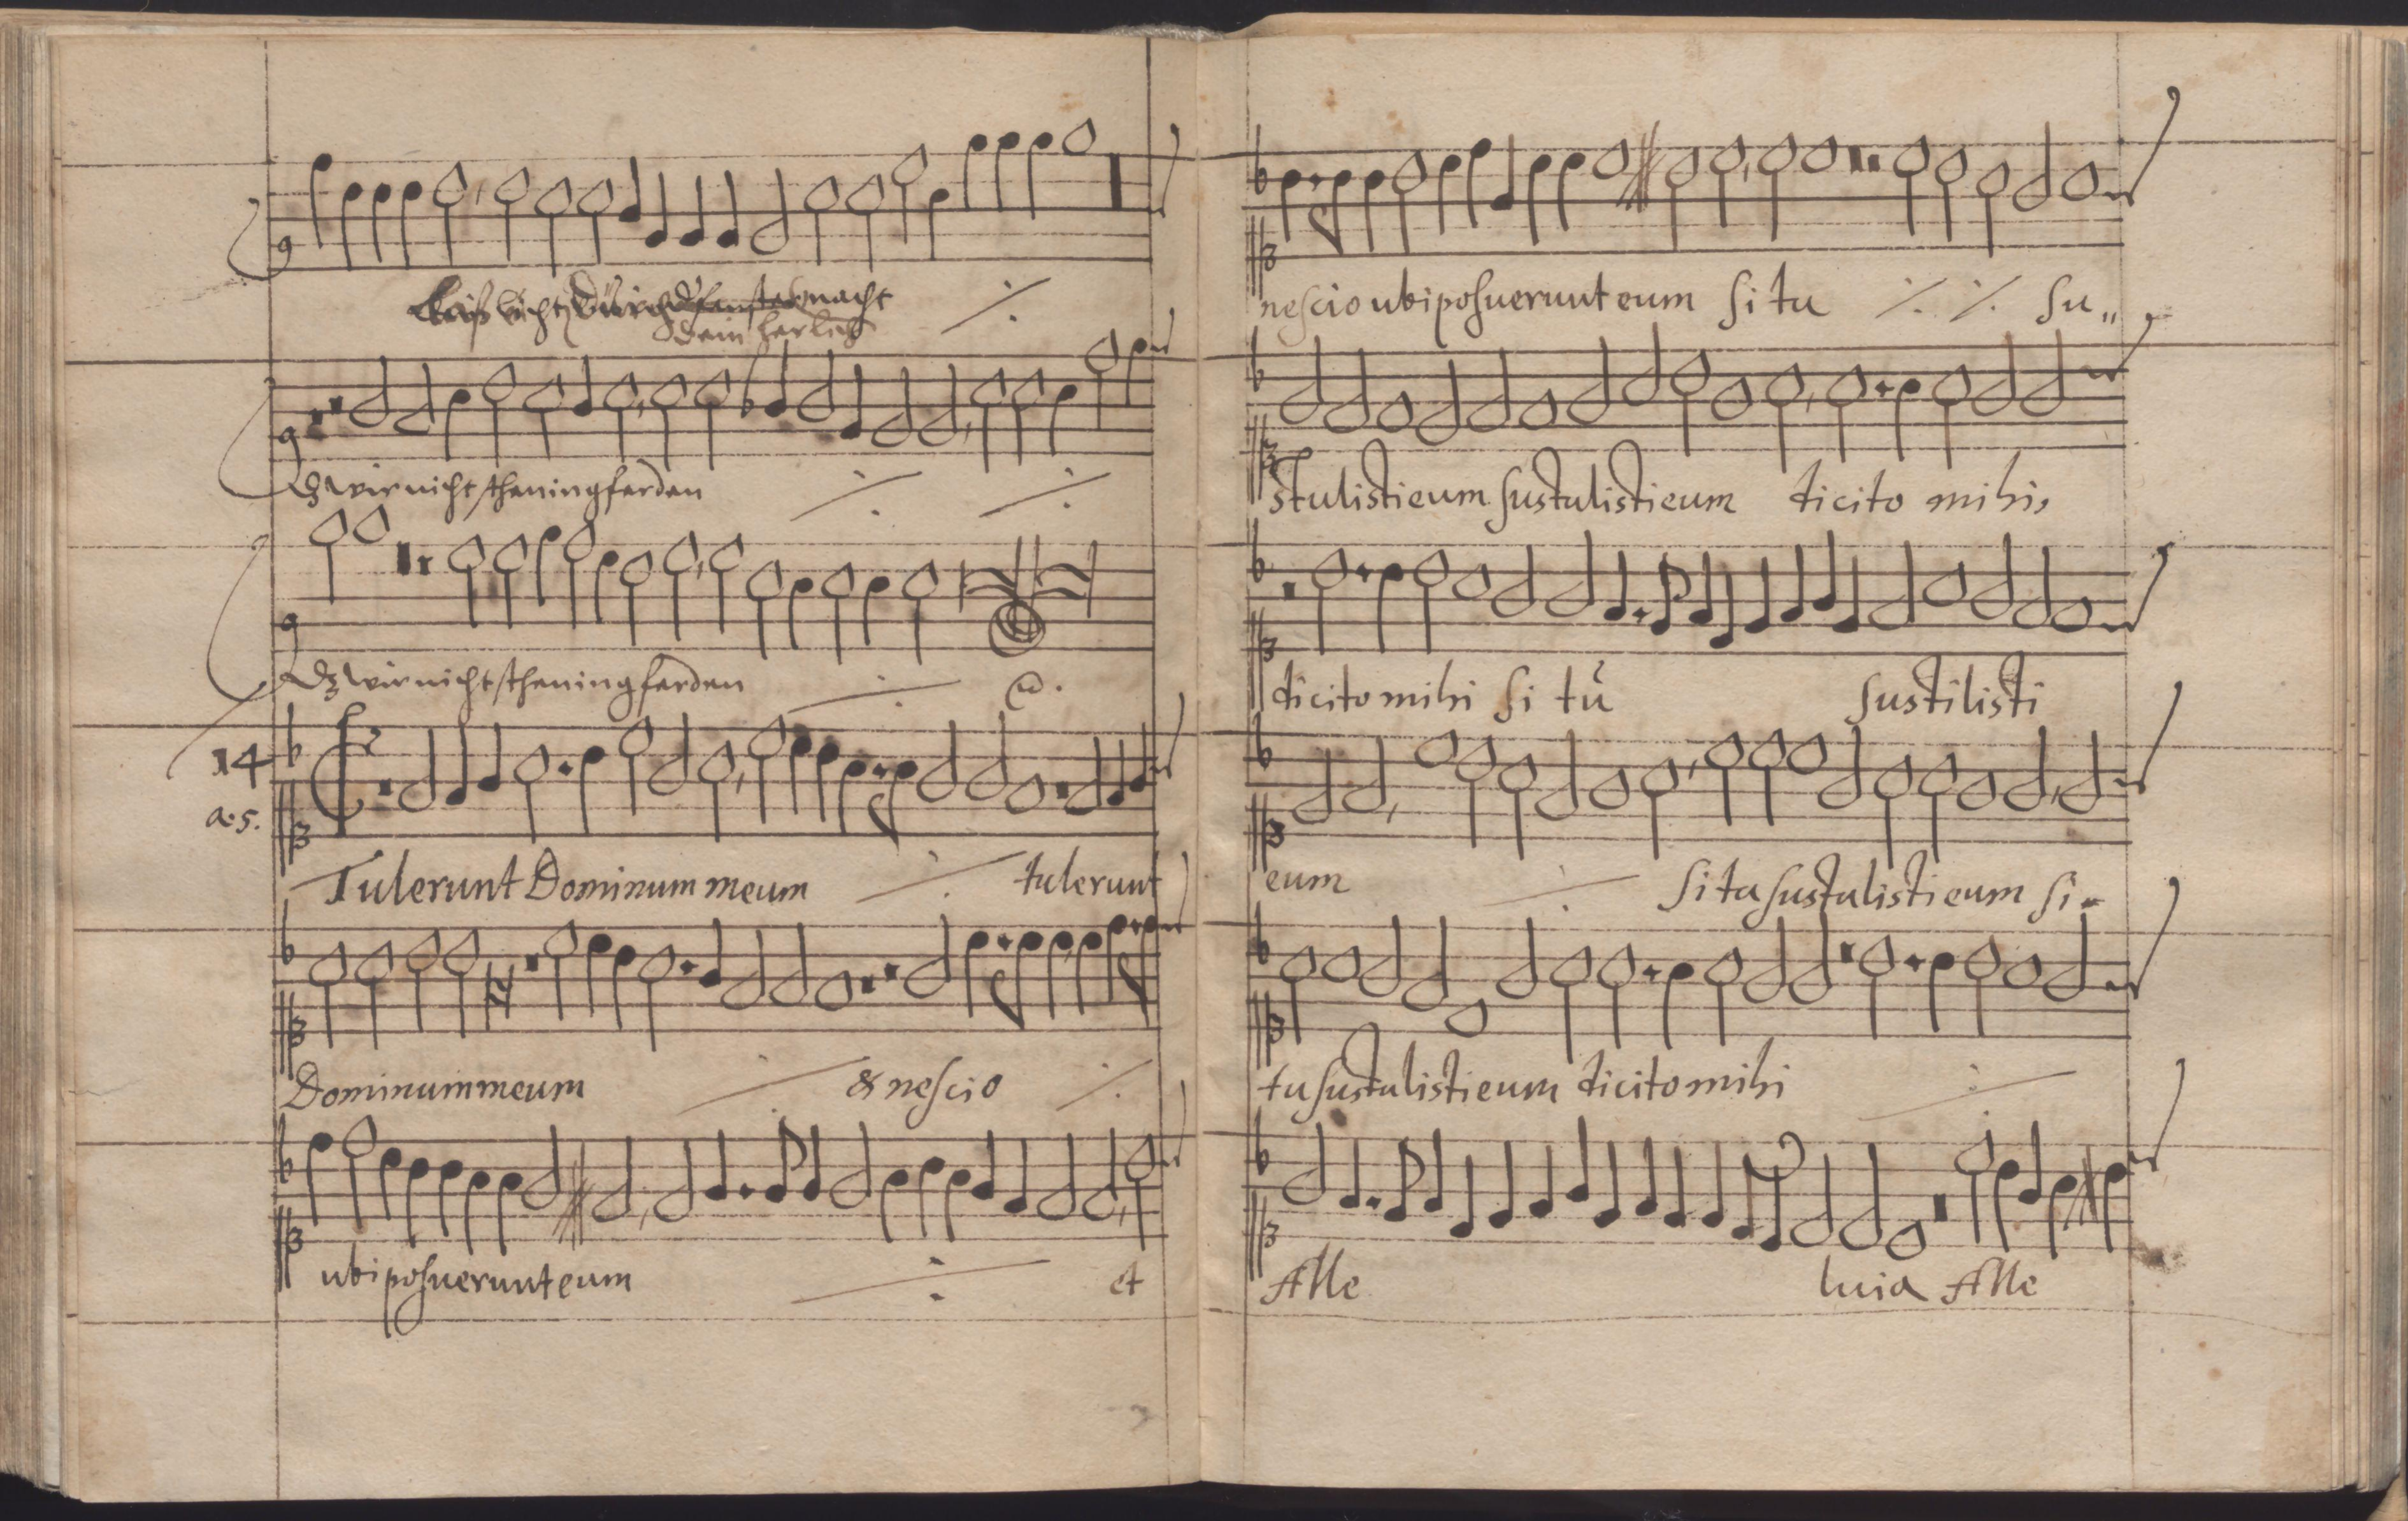 macht
dein herlich
dz wir nicht
dz wir nicht
14
a. 5.
Tulerunt Dominum meum tulerunt
Dominum meum & neſcio
ubi poſuerunt eum et
neſcio ubi poſuerunt eum ſi tu ſu„
ſtuliſti eum ſuſtuliſti eum dicito mihi,
dicito mihi ſi tu ſuſtiliſti
eum ſi tu ſuſtuliſti eum ſi-
tu ſuſtuliſti eum dicito mihi
Alle luia Alle